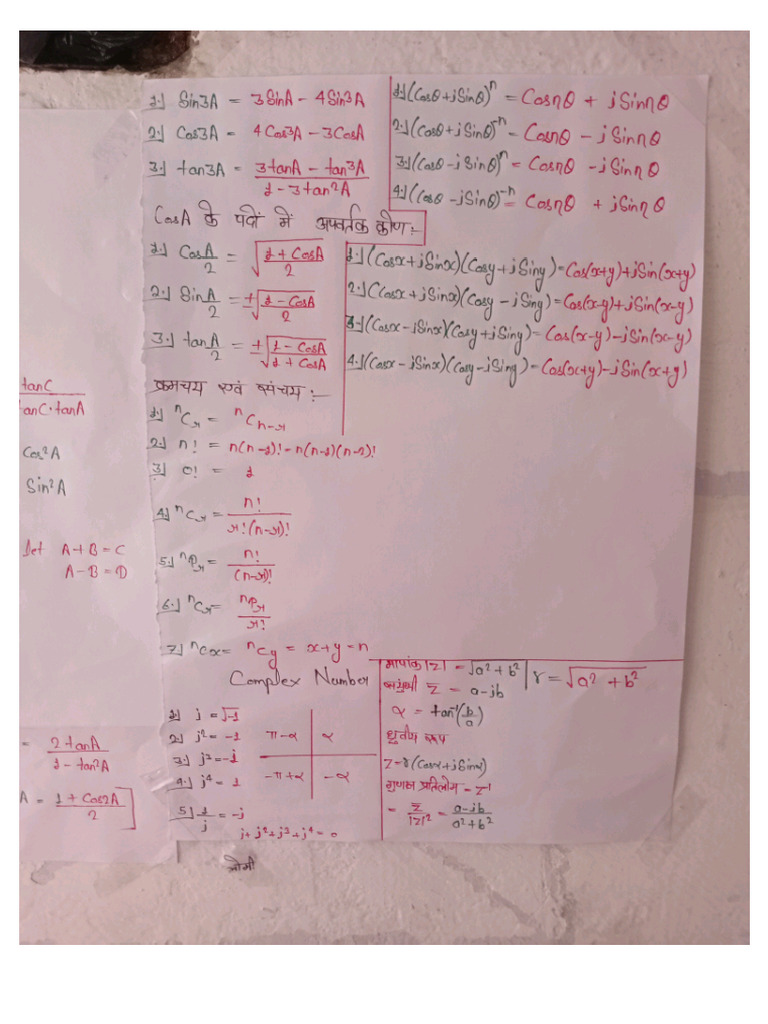 1.) Sin3A = 3SinA - 4Sin³A
2.) Cos3A = 4Cos³A - 3CosA
3.) tan3A = 3tanA - tan³A / 1 - 3tan²A
CosA के पदों में अपवर्तक कोण :-
1.) Cos A/2 = √(1 + CosA / 2)
2.) Sin A/2 = ±√(1 - CosA / 2)
3.) tan A/2 = ±√(1 - CosA / 1 + CosA)
1.) (Cosθ + jSinθ)ⁿ = Cosnθ + jSinnθ
2.) (Cosθ + jSinθ)⁻ⁿ = Cosnθ - jSinnθ
3.) (Cosθ - jSinθ)ⁿ = Cosnθ - jSinnθ
4.) (Cosθ - jSinθ)⁻ⁿ = Cosnθ + jSinnθ
1.) (Cosx + jSinx)(Cosy + jSiny) = Cos(x+y) + jSin(x+y)
2.) (Cosx + jSinx)(Cosy - jSiny) = Cos(x-y) + jSin(x-y)
3.) (Cosx - jSinx)(Cosy + jSiny) = Cos(x-y) - jSin(x-y)
4.) (Cosx - jSinx)(Cosy - jSiny) = Cos(x+y) - jSin(x+y)
क्रमचय एवं संचय :-
1.) ⁿCr = ⁿCn-r
2.) n! = n(n-1)! - n(n-1)(n-2)!
3.) 0! = 1
4.) ⁿCr = n! / r!(n-r)!
5.) ⁿPr = n! / (n-r)!
6.) ⁿCr = ⁿPr / r!
7.) ⁿCx = ⁿCy = x+y = n
Complex Number
1.) j = √-1
2.) j² = -1
3.) j³ = -j
4.) j⁴ = 1
5.) 1/j = -j
j + j² + j³ + j⁴ = 0
π-α α
-π+α -α
मापांक |Z| = √a² + b² | r = √a² + b²
संयुग्मी Z̅ = a-jb
α = tan⁻¹(b/a)
ध्रुवीय रूप
Z = r(Cosα + jSinα)
गुणन प्रतिलोम = Z⁻¹
= Z̅ / |Z|² = a-jb / a²+b²
tanC
tanC·tanA
Cos²A
Sin²A
Let A + B = C
A - B = D
= 2tanA / 1 - tan²A
A = 1 + Cos2A / 2